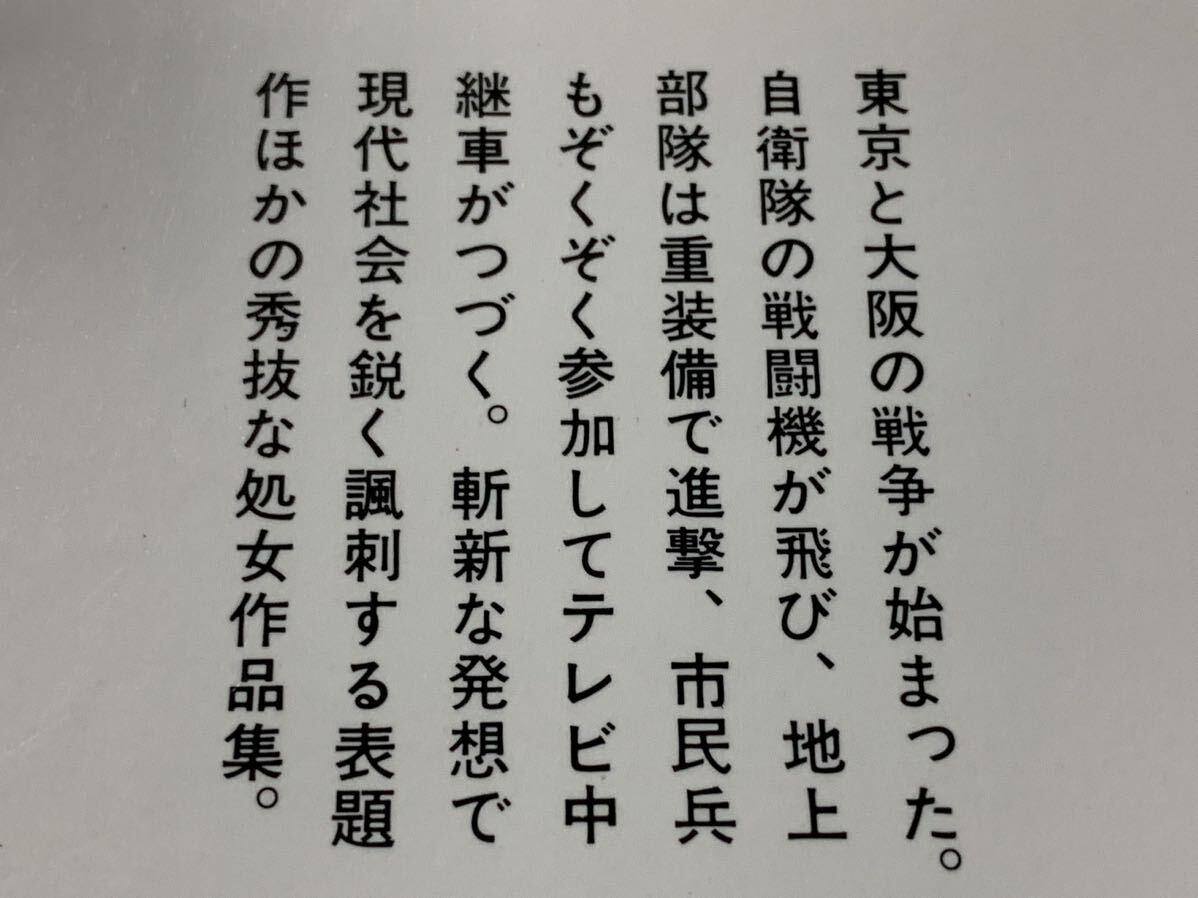 東京と大阪の戦争が始まった。
自衛隊の戦闘機が飛び、地上
部隊は重装備で進撃、市民兵
もぞくぞく参加してテレビ中
継車がつづく。斬新な発想で
現代社会を鋭く諷刺する表題
作ほかの秀抜な処女作品集。